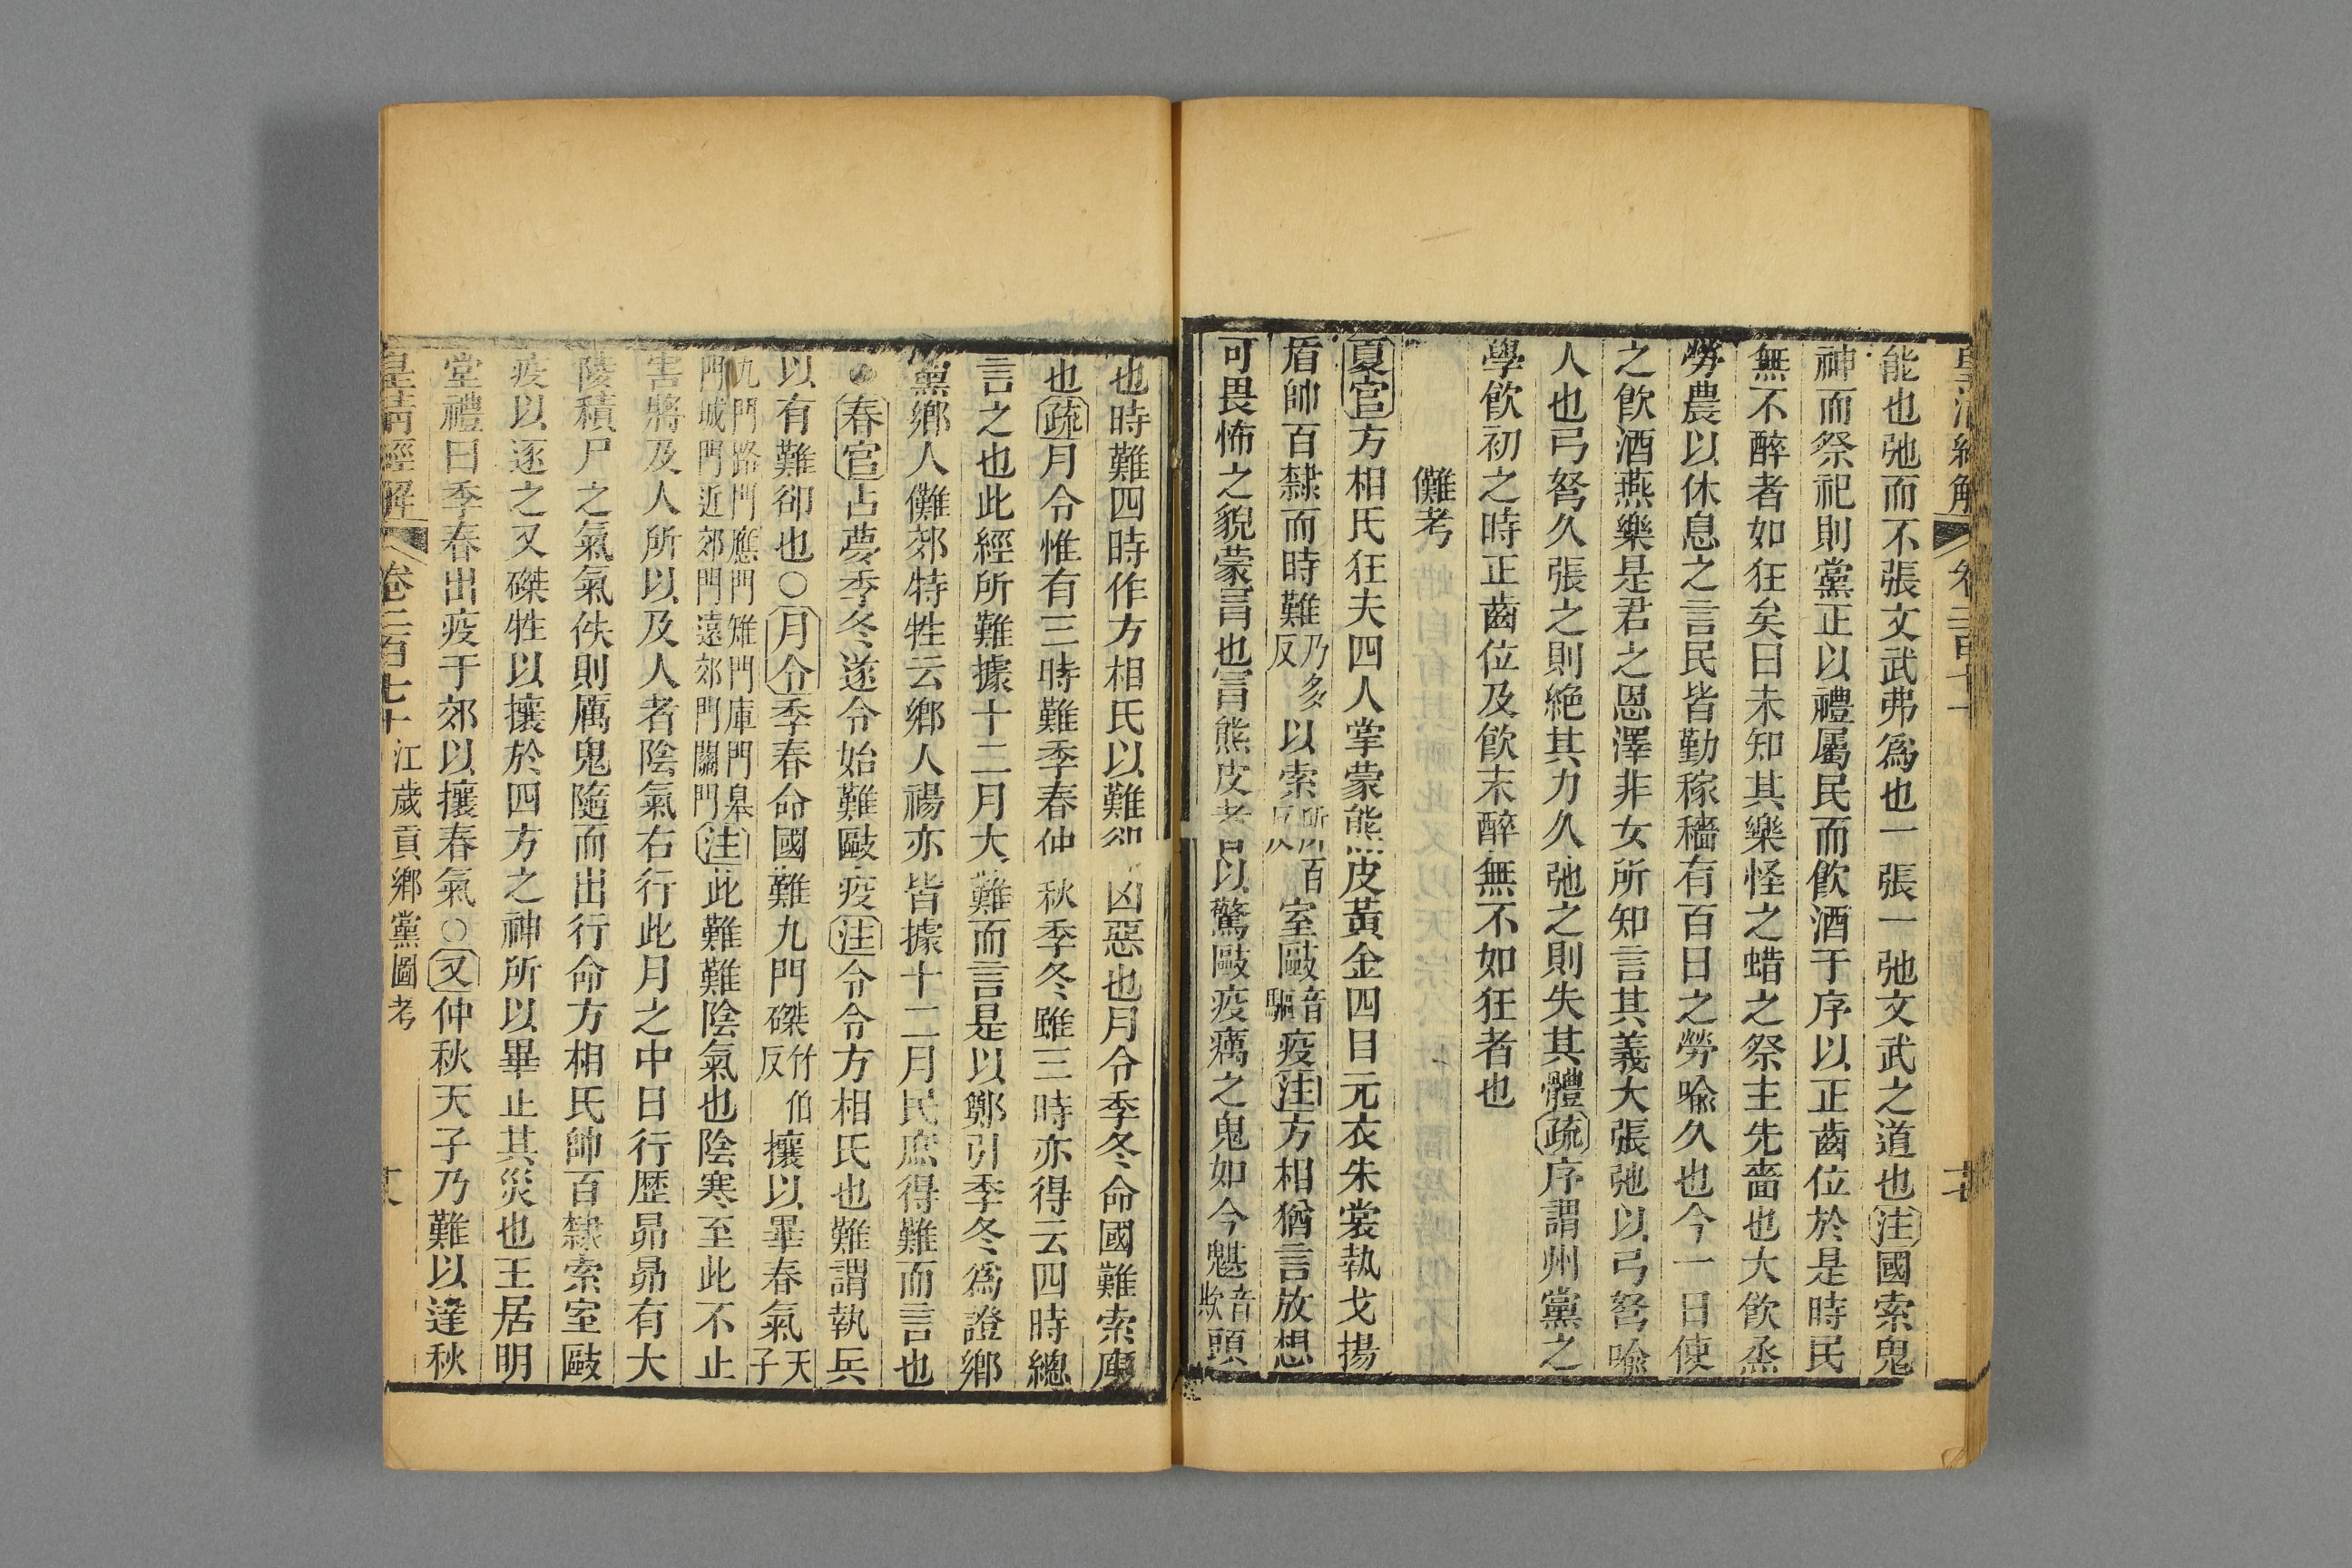 能也弛而不張文武弗爲也一張一弛文武之道也注國索鬼
神而祭祀則黨正以禮屬民而飮酒于序以正齒位於是時民
無不醉者如狂矣曰未知其樂怪之蜡之祭主先嗇也大飮烝
勞農以休息之言民皆勤稼穡有百日之勞喻久也今一日使
之飮酒燕樂是君之恩澤非女所知言其義大張弛以弓弩喻
人也弓弩久張之則絶其力久弛之則失其體疏序謂州黨之
學飮初之時正齒位及飮末醉無不如狂者也
儺考
夏官方相氏狂夫四人掌蒙熊皮黃金四目元衣朱裳執戈揚
盾帥百隸而時難乃多反以索所百反室毆音驅疫注方相猶言放想
可畏怖之貌蒙冒也冒熊皮者以驚毆疫癘之鬼如今魌音欺頭
也時難四時作方相氏以難卻凶惡也月令季冬命國難索廋
也疏月令惟有三時難季春仲秋季冬雖三時亦得云四時總
言之也此經所難據十二月大難而言是以鄭引季冬爲證鄉
黨鄉人儺郊特牲云鄉人禓亦皆據十二月民庶得難而言也
○春官占夢季冬遂令始難毆疫注令令方相氏也難謂執兵
以有難卻也○月令季春命國難九門磔竹伯反攘以畢春氣天子
九門路門應門雉門庫門皋門城門近郊門遠郊門關門注此難難陰氣也陰寒至此不止
害將及人所以及人者陰氣右行此月之中日行歷昴昴有大
陵積尸之氣氣佚則厲鬼隨而出行命方相氏帥百隸索室毆
疫以逐之又磔牲以攘於四方之神所以畢止其災也王居明
堂禮曰季春出疫于郊以攘春氣○又仲秋天子乃難以達秋
皇清經解 卷二百七十 江歲貢鄉黨圖考